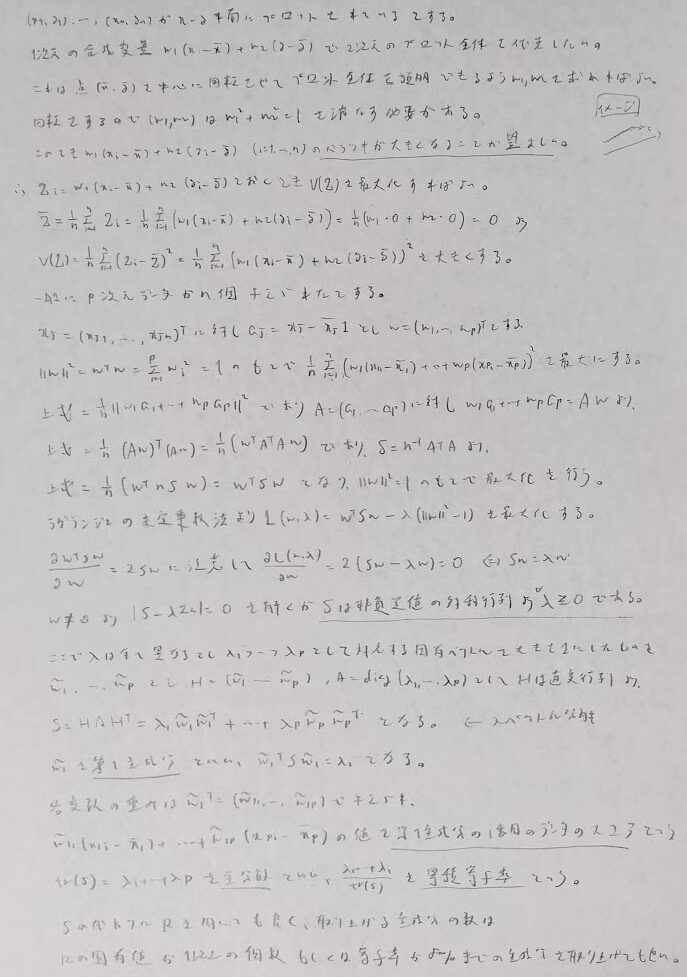 (x1, y1), …, (xn, yn) が x-y 平面にプロットされているとする。
1次元の合成変量 w1(x-x̄) + w2(y-ȳ) で2次元のプロット全体を代表したい。
これは点 (x̄, ȳ) を中心に回転させてプロット全体を説明できるよう w1, w2 を求めればよい。
回転とするので (w1, w2) は w1² + w2² = 1 を満たす必要がある。
イメージ
このとき w1(xi-x̄) + w2(yi-ȳ) (i=1,…,n) のバラツキが大きくなることが望ましい。
∴ Zi = w1(xi-x̄) + w2(yi-ȳ) とおくとき V(Z) を最大化すればよい。
Z̄ = 1/n Σ_{i=1}^n Zi = 1/n Σ_{i=1}^n (w1(xi-x̄) + w2(yi-ȳ)) = 1/n (w1・0 + w2・0) = 0 より
V(Z) = 1/n Σ_{i=1}^n (Zi-Z̄)² = 1/n Σ_{i=1}^n (w1(xi-x̄) + w2(yi-ȳ))² を大きくする。
一般に p 次元データが n 個 与えられたとする。
xj = (xj1, …, xjn)^T に対し aj = xj - x̄j1 とし w = (w1, … wp)^T とする
||w||² = w^T w = Σ_{i=1}^p wi² = 1 のもとで 1/n Σ_{i=1}^n (w1(x1i-x̄1) + … + wp(xpi-x̄p))² を最大にする。
上式 = 1/n ||w1a1 + … + wpap||² であり A = (a1, … ap) に対し w1a1 + … + wpap = Aw より、
上式 = 1/n (Aw)^T(Aw) = 1/n (w^T A^T A w) であり、S = n⁻¹A^T A より、
上式 = 1/n (w^T nS w) = w^T S w となり、||w||² = 1 のもとで最大化を行う。
ラグランジュの未定乗数法より L(w, λ) = w^T S w - λ(||w||² - 1) を最大化する。
∂w^T S w/∂w = 2Sw に注意して ∂L(w, λ)/∂w = 2(Sw - λw) = 0 ⇔ Sw = λw
w ≠ 0 より |S - λI| = 0 を解くが S は非負定値の対称行列より λ ≥ 0 である。
ここで λ は全て異なるとし λ1 > … > λp として対応する固有ベクトルで大きさを1にしたものを
w̃1, …, w̃p とし H = (w̃1 … w̃p), Λ = diag(λ1, … λp) として H は直交行列より
S = HΛH^T = λ1w̃1w̃1^T + … + λpw̃pw̃p^T となる。 ← スペクトル分解
w̃1 を第1主成分といい、w̃1^T S w̃1 = λ1 となる。
各変数の重みは w̃1^T = (w̃11, …, w̃1p) で与えられ、
w̃11(x1i-x̄1) + … + w̃1p(xpi-x̄p) の値を第1主成分の i番目のデータのスコアという
tr(S) = λ1 + … + λp を全分散といい、(λ1 + … + λi)/tr(S) を累積寄与率という。
Sの代わりに R を用いても良く、取り上げる主成分の数は
Rの固有値が1以上の個数 もしくは寄与率が %までの主成分を取り上げても良い。